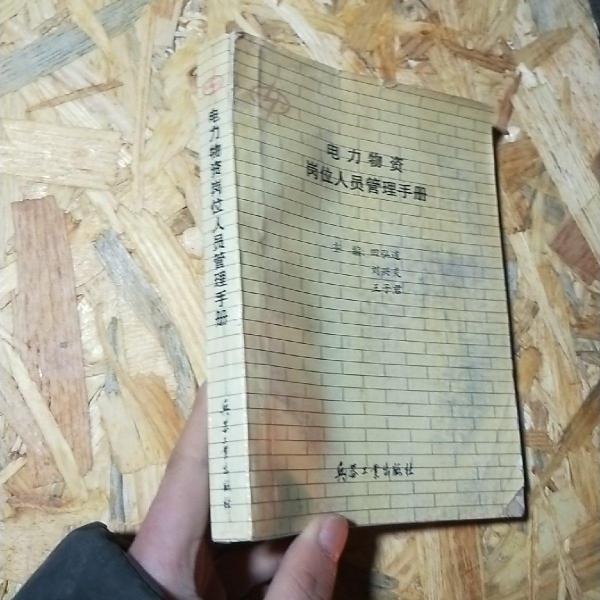 电力物资
岗位人员管理手册
主编 田弘道
兵器工业出版社
电力物资岗位人员管理手册
兵器工业出版社